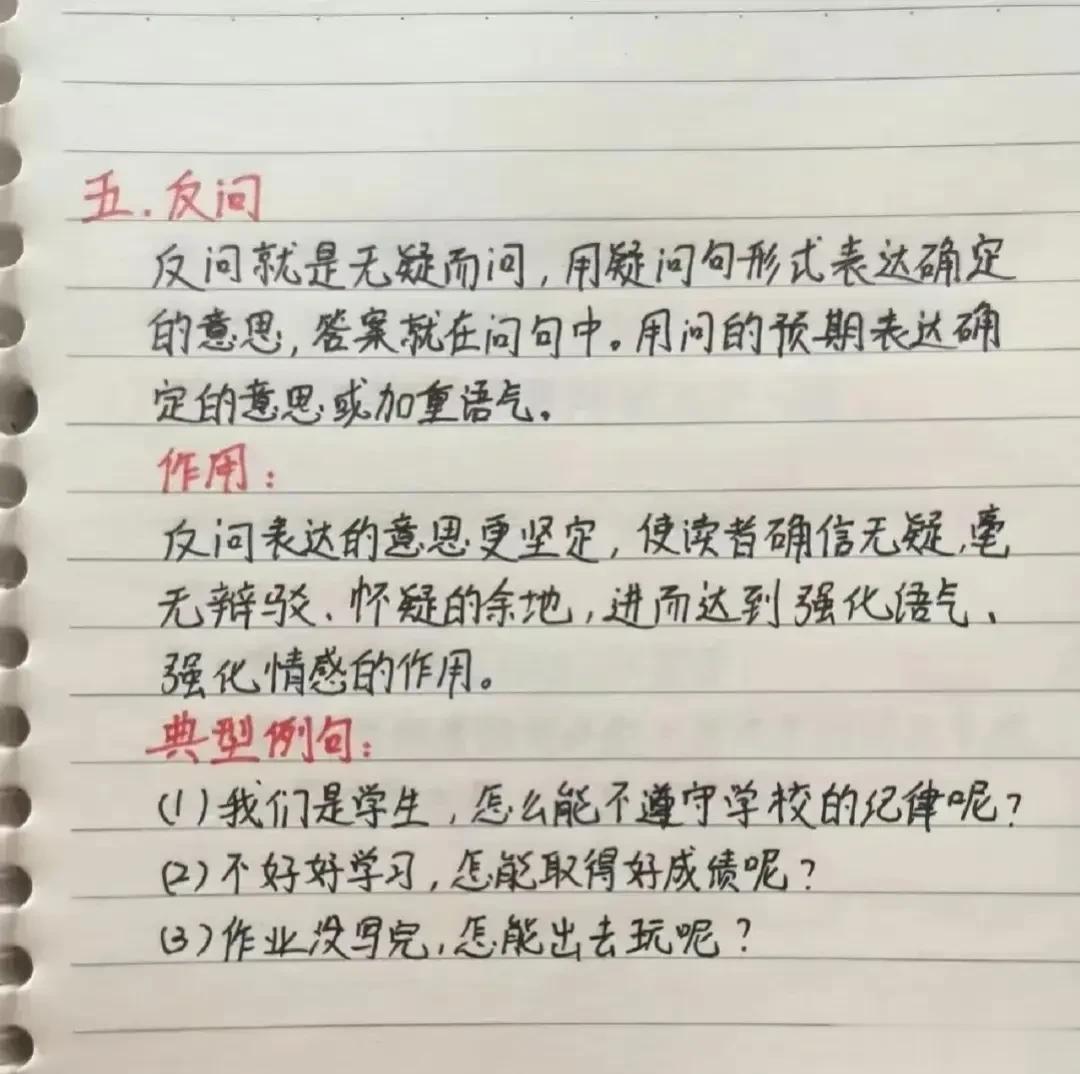 五.反问
反问就是无疑而问,用疑问句形式表达确定
的意思,答案就在问句中。用问的预期表达确
定的意思或加重语气。
作用:
反问表达的意思更坚定,使读者确信无疑,毫
无辩驳、怀疑的余地,进而达到强化语气、
强化情感的作用。
典型例句:
(1)我们是学生,怎么能不遵守学校的纪律呢?
(2)不好好学习,怎能取得好成绩呢?
(3)作业没写完,怎能出去玩呢?